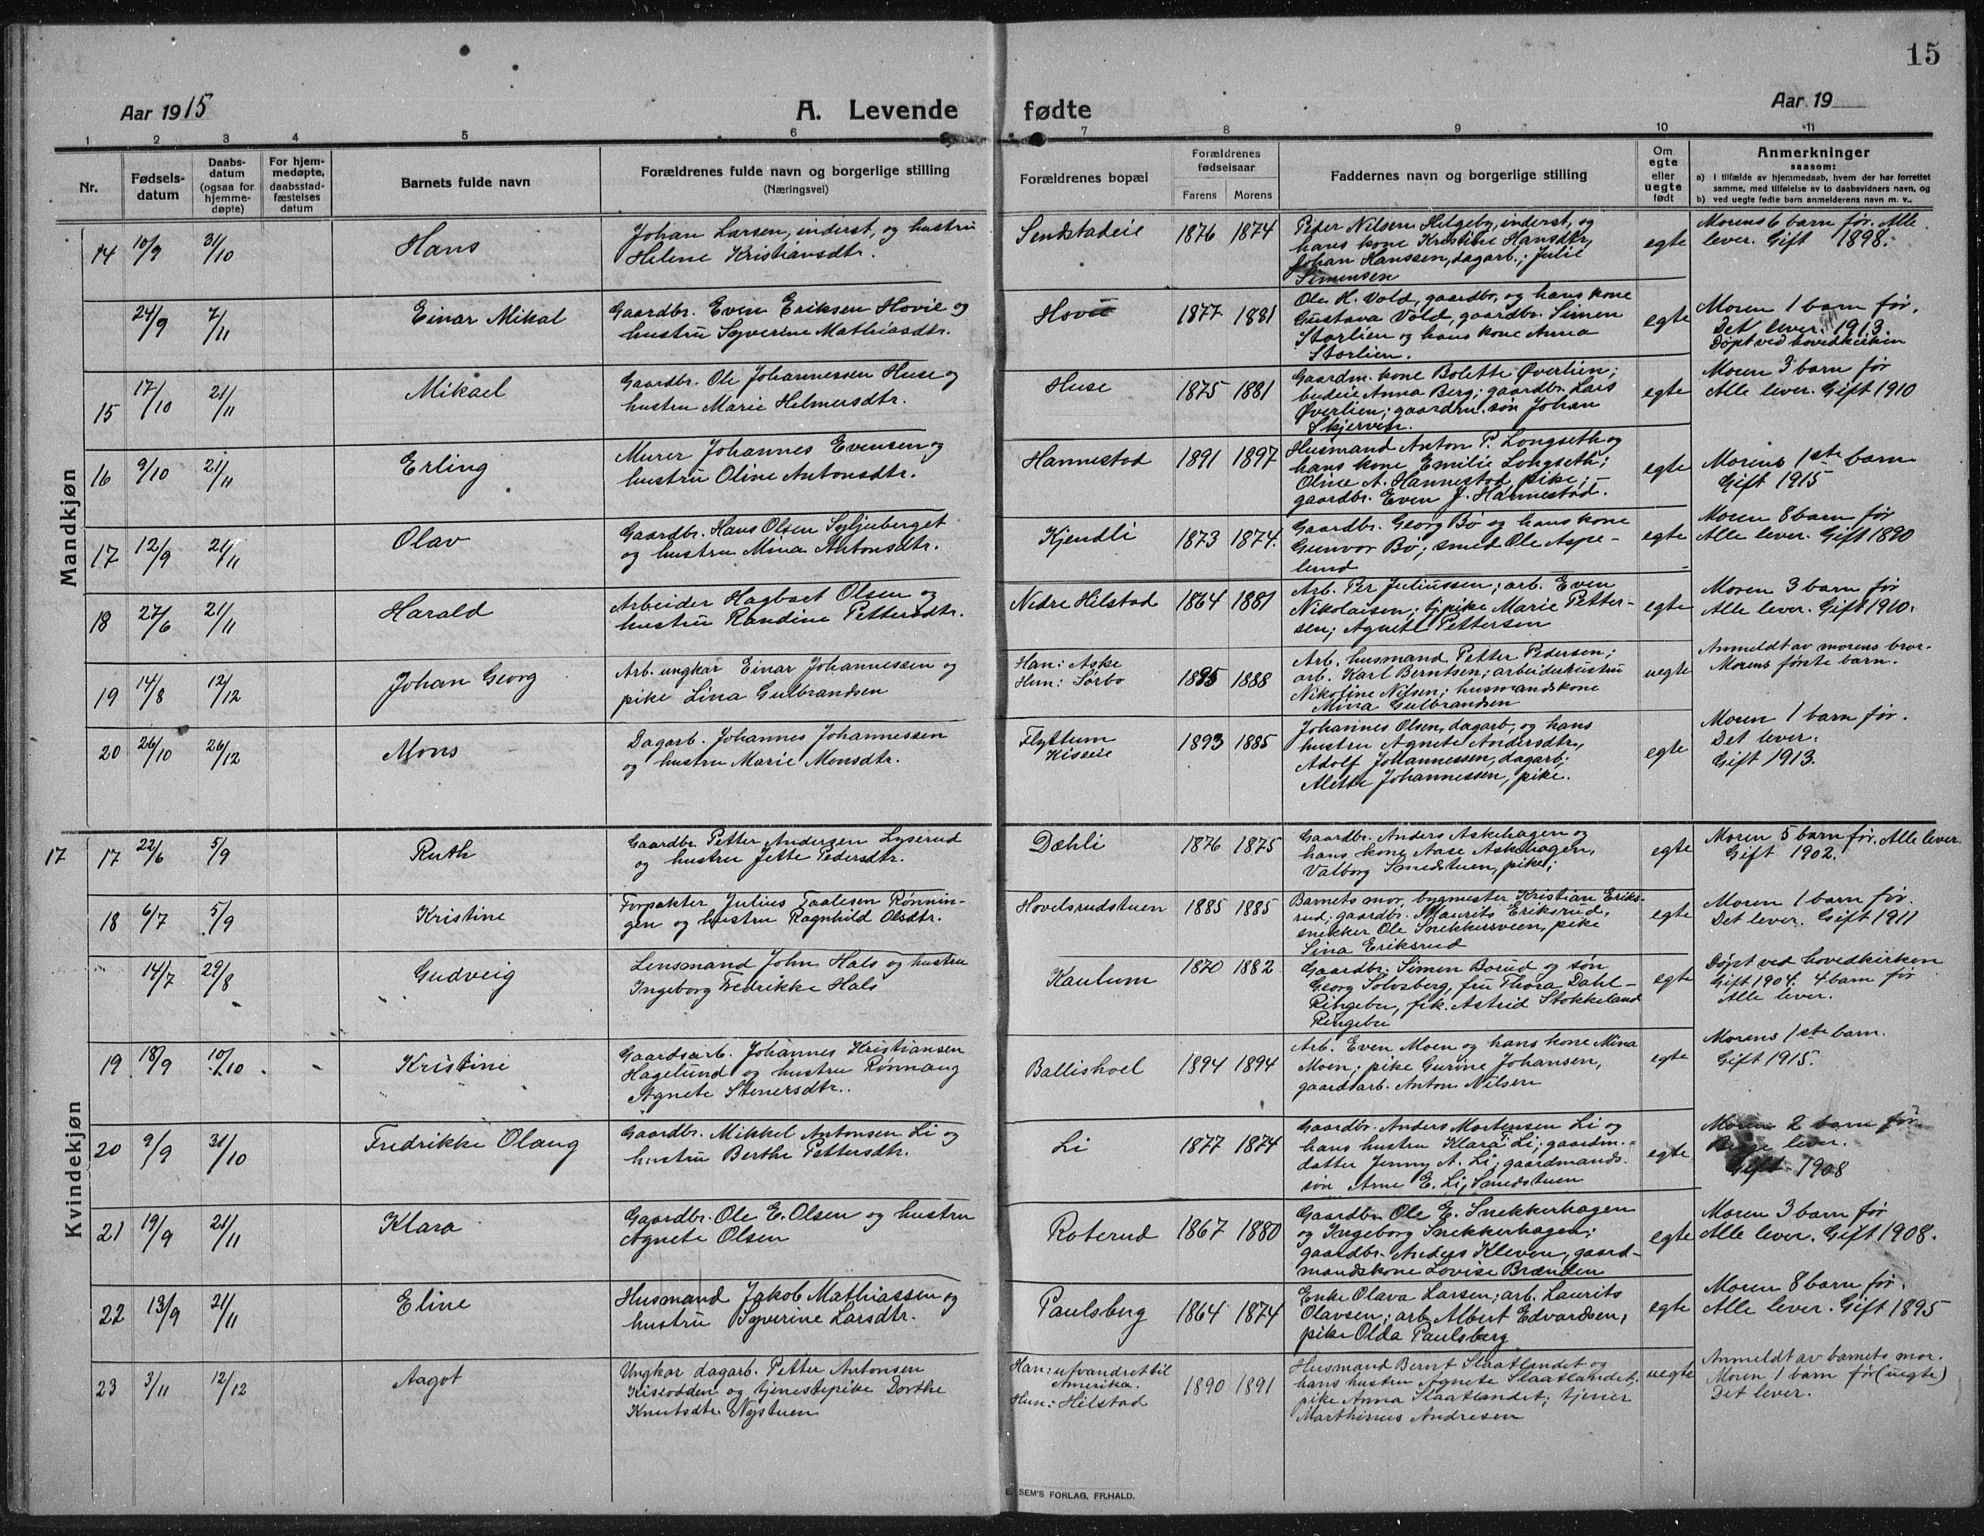 15
Aar 1915
A. Levende fødte
Aar 19
1 2 3 4 5 6 7 8 9 10 11
Nr.
Fødsels-
datum
Daabs-
datum
(ogsaa for
hjemme-
døpte)
For hjem-
medøpte,
daabsstad-
fæstelses
datum
Barnets fulde navn
Forældrenes fulde navn og borgerlige stilling
(Næringsvei)
Forældrenes bopæl
Forældrenes
fødselsaar
Farens Morens
Faddernes navn og borgerlige stilling
Om
egte
eller
uegte
født
Anmerkninger
saasom:
a) I tilfælde av hjemmedaab, hvem der har forrettet
samme, med tilføielse av to daabsvidners navn, og
b) ved uegte fødte barn anmelderens navn m. v..
Mandkjøn
14 10/9 31/10
Hans
Johan Larsen, inderst, og hustru
Helene Kristiansdtr.
Sendstadeie
1876 1874
Peder Nilsen Hilgeby, inderst, og
hans kone Kristine Hansdtr,
Johan Hanssen, dagarb.; Julie
Simensen
egte
Morens 6 barn før. Alle
lever. Gift 1898.
24/9 7/11
Einar Mikal
Gaardbr. Even Eriksen Hovie og
hustru Syverine Mathiasdtr.
Hovie
1877 1881
Ole H. Vold, gaardbr, og hans kone
Gustava Vold, gaardbr. Simen
Storlien og hans kone Anna
Storlien.
egte
Moren 1 barn før.
Det lever. Gift 1913.
Døpt ved hovedkirken
15 17/10 21/11
Mikael
Gaardbr. Ole Johannessen Huse og
hustru Marie Helmersdtr.
Huse
1875 1881
Gaardm. kone Bolette Øverlien;
budeie Anna Berg; gaardbr. Lars
Øverlien; gaardm. søn Johan
Skjerven.
egte
Moren 3 barn før
Alle lever. Gift 1910
16 9/10 21/11
Erling
Murer Johannes Evensen og
hustru Oline Antonsdtr.
Hannestad
1891 1897
Husmand Anton P. Longseth og
hans kone Emilie Longseth;
Oline A. Hannestad, pike;
gaardbr. Even J. Hannestad.
egte
Morens 1ste barn
Gift 1915
17 12/9 21/11
Olav
Gaardbr. Hans Olsen Syljuberget
og hustru Mina Antonsdtr.
Kjendli
1873 1874.
Gaardbr. Georg Bø og hans kone
Gunvor Bø; smed Ole Aspe-
lund
egte
Moren 8 barn før
Alle lever. Gift 1890
18 27/6 21/11
Harald
Arbeider Hagbart Olsen og
hustru Randine Pettersdtr.
Nedre Hilstad
1864 1881
Arb. Per Juliussen; arb. Even
Nikolaisen; tj.pike Marie Petter-
sen; Agnete Pettersen
egte
Moren 3 barn før
Alle lever. Gift 1910.
19 14/8 12/12
Johan Georg
Arb. ungkar Einar Johannessen og
pike Lina Gulbrandsen
Han: Aske
Hun: Sørbo
1895 1888
Arb. husmand Petter Pedersen;
arb. Karl Berntsen; arbeiderhustru
Nikoline Nilsen; husmandskone
Mina Gulbrandsen
uegte
Anmeldt av morens bror.
Morens første barn.
20 26/10 26/12
Mons
Dagarb. Johannes Johannessen
og hustru Marie Monsdtr.
Flyttum
Kisseie
1893 1885
Johannes Olsen, dagarb, og hans
hustru Agnete Andersdtr,
Adolf Johannessen, dagarb;
Alette Johannessen, pike.
egte
Moren 1 barn før.
Det lever.
Gift 1913.
Kvindekjøn
17 17 22/6 5/9
Ruth
Gaardbr. Petter Andersen Lyserud
og hustru Jette Pedersdtr.
Dæhli
1876 1875
Gaardbr. Anders Askehagen og
hans kone Aase Askehagen,
Valborg Smedstuen, pike;
egte
Moren 5 barn før. Alle lever.
Gift 1902.
18 6/7 5/9
Kristine
Forpakter Julius Taalesen Rønnin-
gen og hustru Ragnhild Olsdtr.
Hovelsrudstuen
1885 1885
Barnets mor, bygmester Kristian Eriks-
rud, gaardbr. Maurits Eriksrud,
snekker Ole Snekkersveen, pike
Lina Eriksrud
egte
Moren 1 barn før.
Det lever. Gift 1911
14/7 29/8
Gudveig
Lensmand John Hals og hustru
Ingeborg Fredrikke Hals
Kaulum
1870 1882
Gaardbr. Simen Borud og søn
Georg Solvsberg, fru Thora Dahl-
Ringebu, frk. Astrid Stokkeland
Ringebu
egte
Døpt ved hovedkirken
Gift 1904. 4 barn før
Alle lever.
19 18/9 10/10
Kristine
Gaardsarb. Johannes Kristiansen
Hagelund og hustru Rønnaug
Agnete Stenersdtr.
Ballishoel
1894 1894
Arb. Even Moen og hans kone Mina
Moen; pike Gurine Johansen,
gaardarb. Anton Nilsen
egte
Morens 1ste barn.
Gift 1915.
20 9/9 31/10
Fredrikke Olaug
Gaardbr. Mikkel Antonsen Li og
hustru Berthe Pettersdtr.
Li
1877 1874
Gaardbr. Anders Mortensen Li og
hans hustru Klara Li; gaardm.-
datter Jenny A. Li; gaardmands-
søn Arne E. Li, Smedstuen
egte
Moren 2 barn før
Begge lever.
Gift 1908
21 19/9 21/11
Klara
Gaardbr. Ole E. Olsen og hustru
Agnete Olsen
Roterud
1867 1880
Gaardbr. Ole E. Snekkerhagen
og Ingeborg Snekkerhagen;
gaardbr. Anders Kleven, gaard-
mandskone Lovise Brænden
egte
Moren 3 barn før
Alle lever. Gift 1908.
22 13/9 21/11
Eline
Husmand Jakob Mathiassen og
hustru Syverine Larsdtr.
Paulsberg
1864 1874
Enke Olava Larsen; arb. Laurits
Olavsen; arb. Albert Edvardsen,
pike Olda Paulsberg
egte
Moren 8 barn før.
Alle lever. Gift 1895
23 3/11 12/12
Aagot
Ungkar dagarb. Petter Antonsen
Kisrodden og tjenestepike Dorthe
Knutsdtr. Nystuen
Han: utvandret til
Amerika.
Hun: Hilstad
1890 1891
Husmand Bernt Slaatlandet og
hans hustru Agnete Slaatlandet;
pike Anna Slaatlandet; tjener
Marthinus Andresen
uegte
Anmeldt av barnets mor.
Moren 1 barn før (uegte)
Det lever.
E. SEM'S FORLAG, FR.HALD.